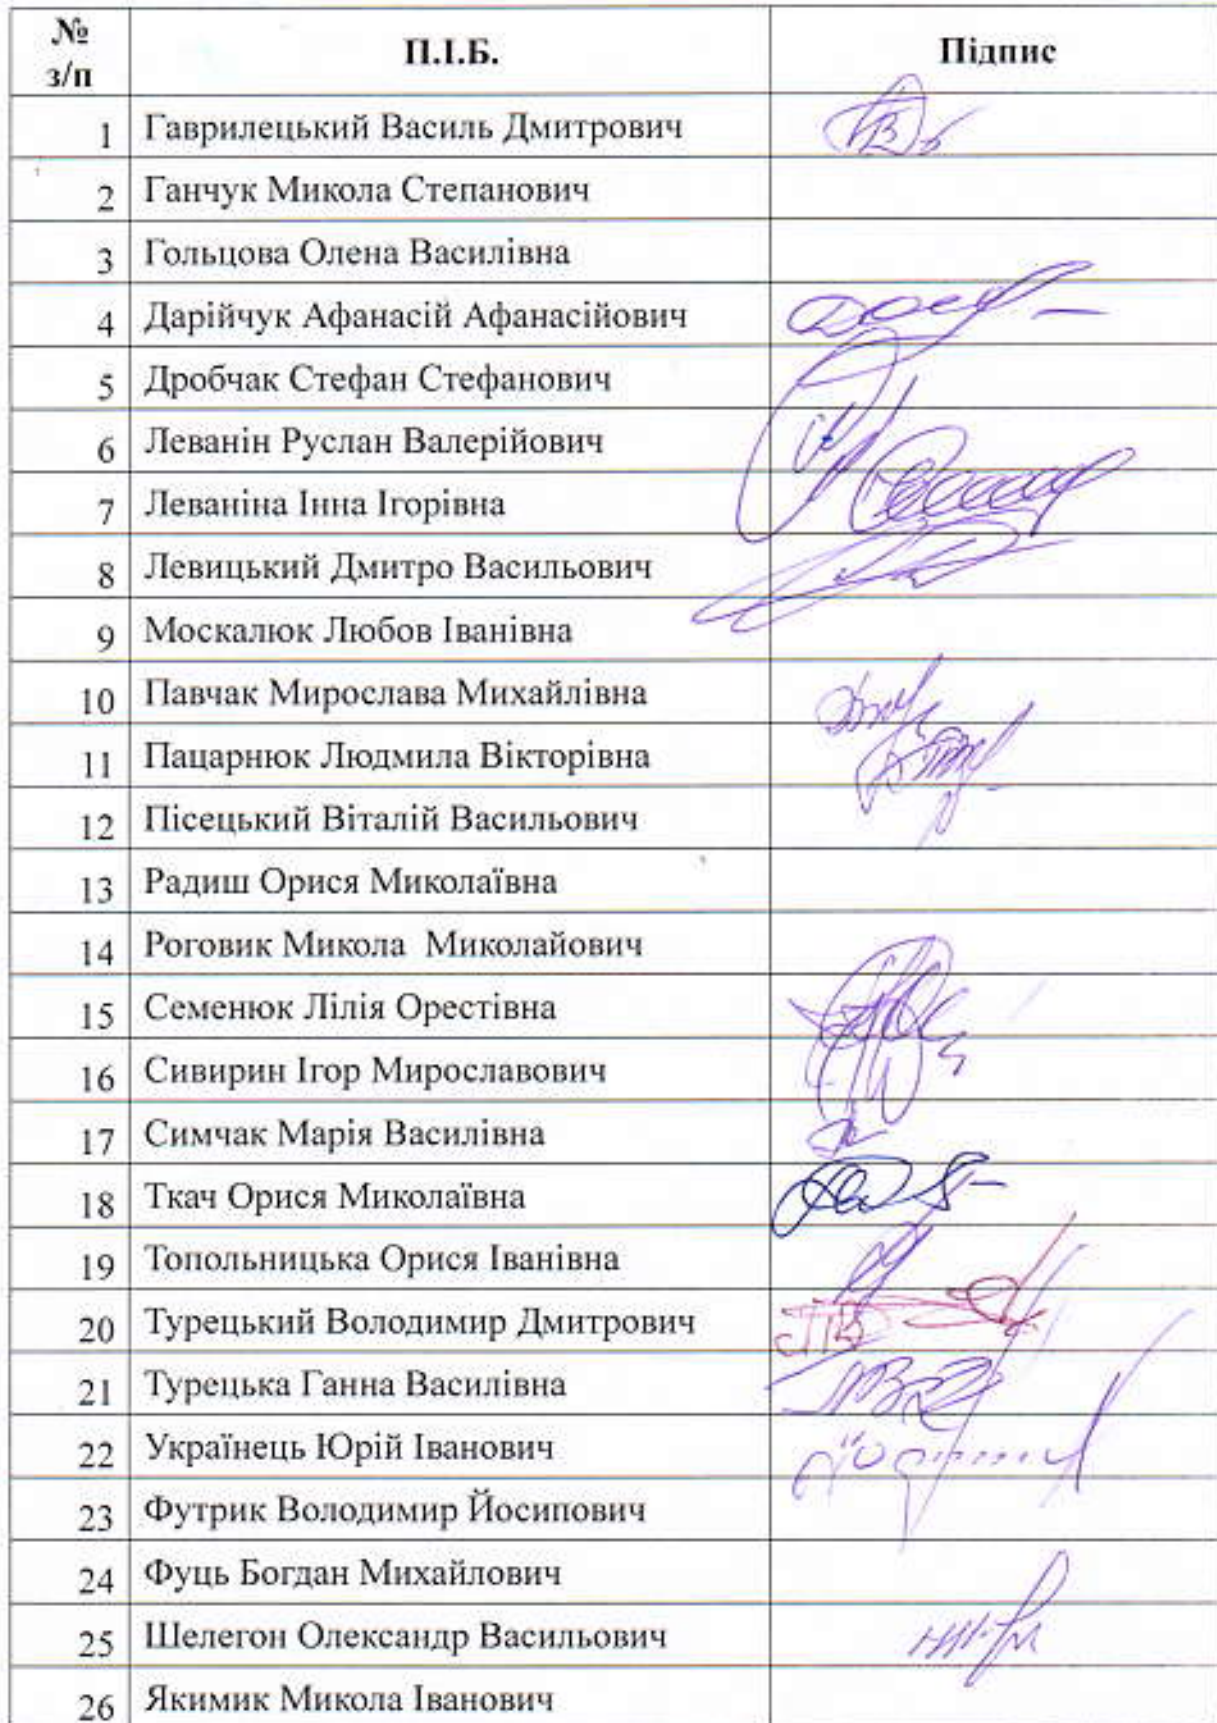 № з/п П.І.Б. Підпис
1 Гаврилецький Василь Дмитрович
2 Ганчук Микола Степанович
3 Гольцова Олена Василівна
4 Дарійчук Афанасій Афанасійович
5 Дробчак Стефан Стефанович
6 Леванін Руслан Валерійович
7 Леваніна Інна Ігорівна
8 Левицький Дмитро Васильович
9 Москалюк Любов Іванівна
10 Павчак Мирослава Михайлівна
11 Пацарнюк Людмила Вікторівна
12 Пісецький Віталій Васильович
13 Радиш Орися Миколаївна
14 Роговик Микола Миколайович
15 Семенюк Лілія Орестівна
16 Сивирин Ігор Мирославович
17 Симчак Марія Василівна
18 Ткач Орися Миколаївна
19 Топольницька Орися Іванівна
20 Турецький Володимир Дмитрович
21 Турецька Ганна Василівна
22 Українець Юрій Іванович
23 Футрик Володимир Йосипович
24 Фуць Богдан Михайлович
25 Шелегон Олександр Васильович
26 Якимик Микола Іванович